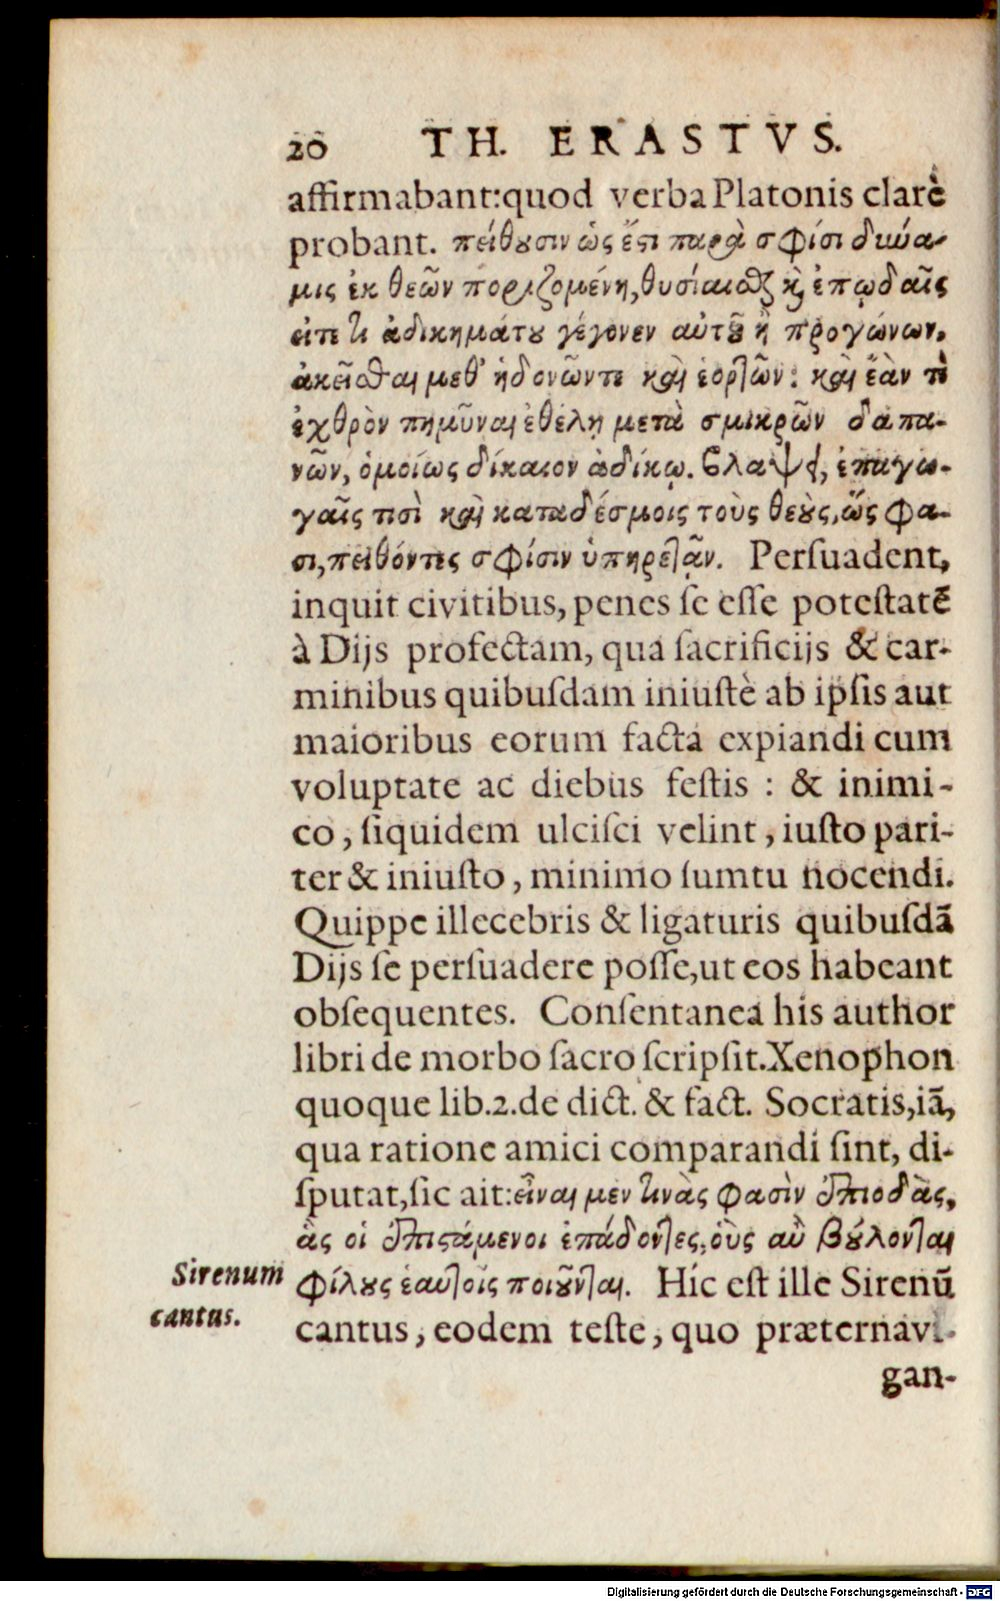 20 TH. ERASTVS.
affirmabant:quod verba Platonis clarè
probant. πείθουσιν ὡς ἔστι παρὰ σφίσι δύνα-
μις ἐκ θεῶν ποριζομένη,θυσίαισϊ καὶ ἐπῳδαῖς
εἴτε τι ἀδικημάτου γέγονεν αὐτοῦ ἢ προγόνων,
ἀκεῖσθαι μεθ' ἡδονῶντε καὶ ἑορτῶν: καὶ ἐὰν τὶ
ἐχθρὸν πημῦναι ἐθέλῃ μετὰ σμικρῶν δαπα-
νῶν, ὁμοίως δίκαιον ἀδίκῳ. βλαψϊ, ἐπαγω-
γαῖς τισὶ καὶ καταδέσμοις τοὺς θεοὺς,ὥς φα-
σι,πειθόντες σφίσιν ὑπηρετᾷν. Perſuadent,
inquit civitibus, penes ſe eſſe poteſtatē
à Dijs profectam, qua ſacrificijs & car-
minibus quibuſdam iniuſtè ab ipſis aut
maioribus eorum facta expiandi cum
voluptate ac diebus feſtis : & inimi-
co, ſiquidem ulciſci velint, iuſto pari-
ter & iniuſto, minimo ſumtu nocendi.
Quippe illecebris & ligaturis quibuſdā
Dijs ſe perſuadere poſſe,ut eos habeant
obſequentes. Conſentanea his author
libri de morbo ſacro ſcripſit.Xenophon
quoque lib.2.de dict. & fact. Socratis,iā,
qua ratione amici comparandi ſint, di-
ſputat,ſic ait:εἶναι μεν τινὰς φασὶν ἐπιοδὰς,
ἃς οἱ ἐπιστάμενοι ἐπάδοντες,οὓς αὖ βούλονται
φίλους ἑαυτοῖς ποιοῦνται. Hic eſt ille Sirenū
cantus, eodem teſte, quo præternavi-
gan-
Sirenum
cantus.
Digitalisierung gefördert durch die Deutsche Forschungsgemeinschaft - DFG